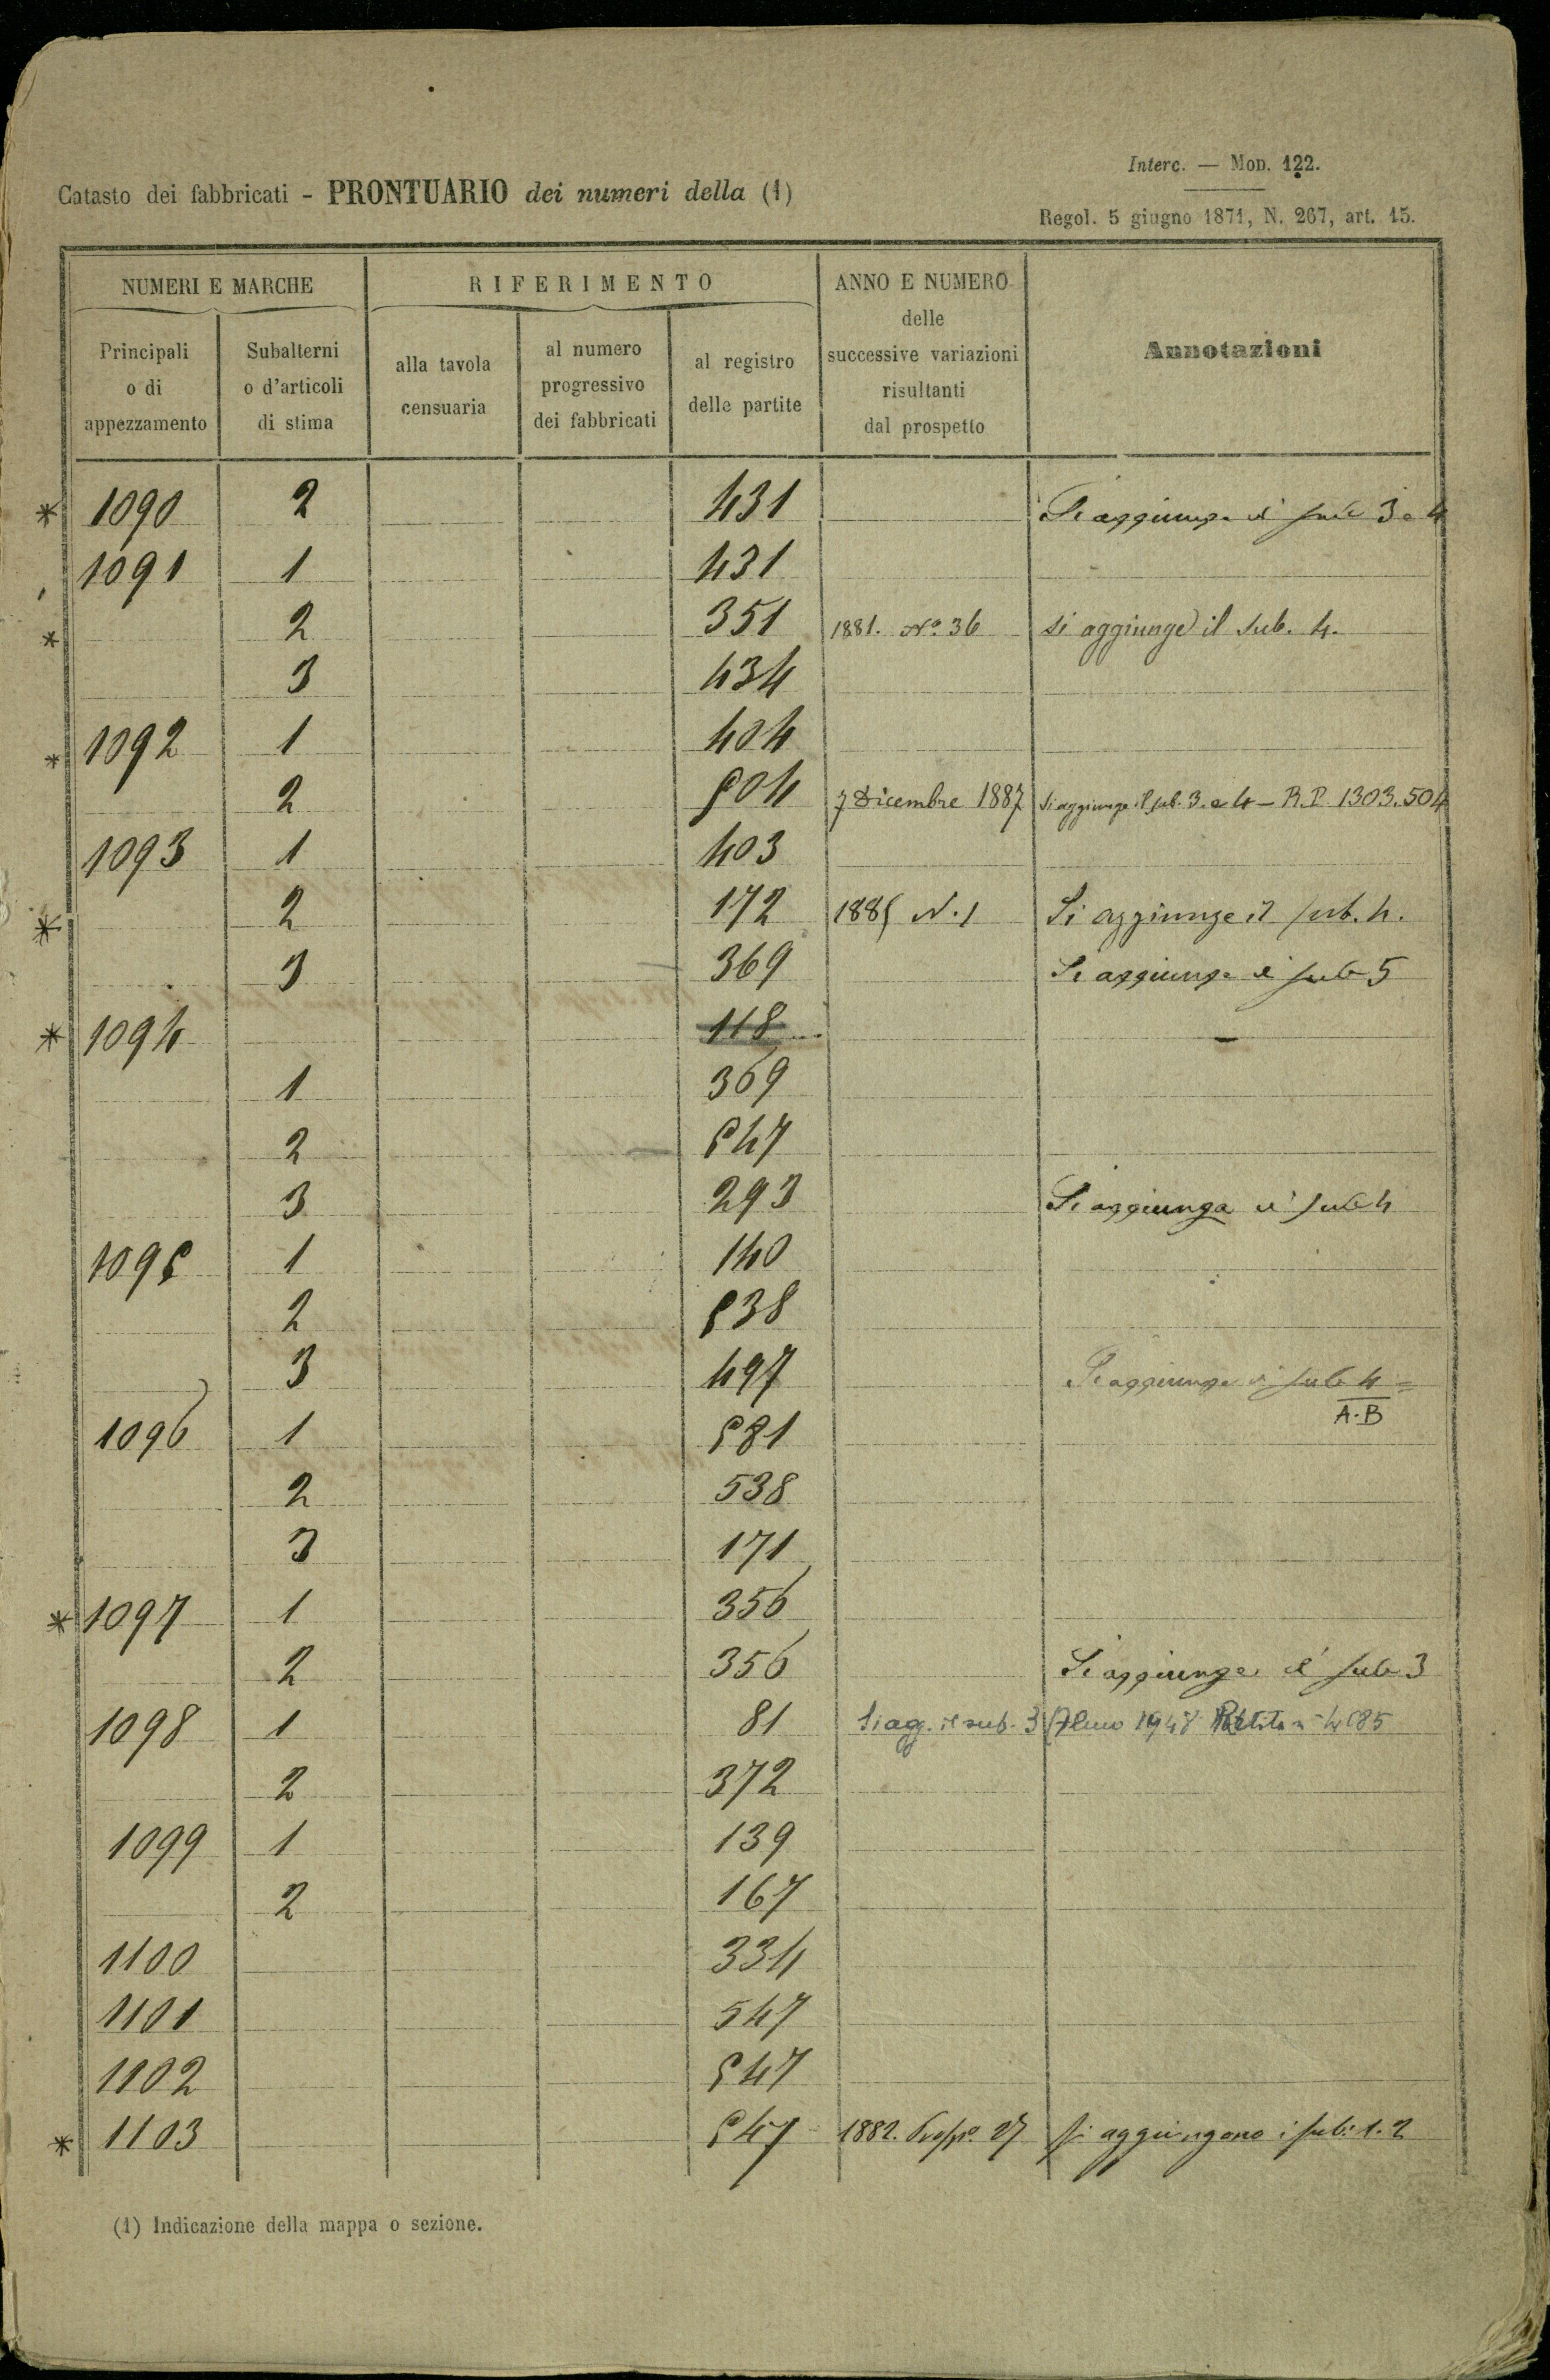 Interc. — Mod. 122.
Catasto dei fabbricati - PRONTUARIO dei numeri della (1)
Regol. 5 giugno 1871, N. 267, art. 15.
NUMERI E MARCHE RIFERIMENTO ANNO E NUMERO delle successive variazioni risultanti dal prospetto Annotazioni
Principali o di appezzamento Subalterni o d'articoli di stima alla tavola censuaria al numero progressivo dei fabbricati al registro delle partite
* 1090 2 431 Si aggiunge il sub 3 e 4
1091 1 431
* 2 351 1881. No. 36 si aggiunge il sub. 4.
3 434
* 1092 1 404
2 504 7 Dicembre 1887 Si aggiunge il sub. 3. e 4 – R.P. 1303.504
1093 1 403
* 2 172 1885 N. 1 Si aggiunge il sub. 4.
3 369 Si aggiunge il sub 5
* 1094 118
1 369
2 547
3 293 Si aggiunga il sub 4
1095 1 140
2 538
3 497 Si aggiunge il sub 4 =
A-B
1096 1 581
2 538
3 171
* 1097 1 356
2 356 Si aggiunge il sub 3
1098 1 81 Si agg. il sub. 3 1948 Partita
2 372
1099 1 139
2 167
1100 334
1101 547
1102 547
* 1103 547 1882. Prosp. 27 si aggiungono i sub. 1. 2
(1) Indicazione della mappa o sezione.